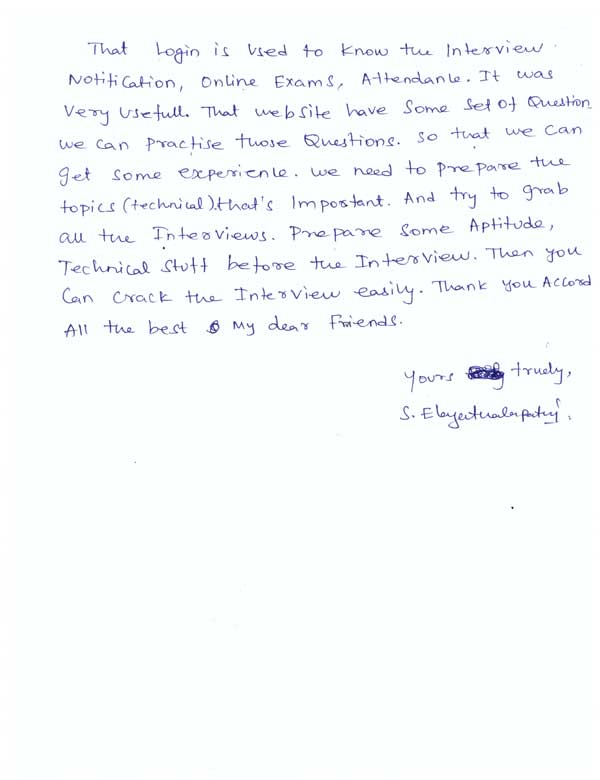 That Login is Used to Know the Interview
Notification, Online Exams, Attendance. It was
Very Usefull. That website have Some Set Of Question
we can Practise those Questions. So that we can
get some experience. we need to prepare the
topics (technical).that's Important. And try to grab
all the Interviews. Prepare Some Aptitude,
Technical Stuff before the Interview. Then you
Can Crack the Interview easily. Thank you Accord
All the best My dear Friends.
Yours truely,
S.